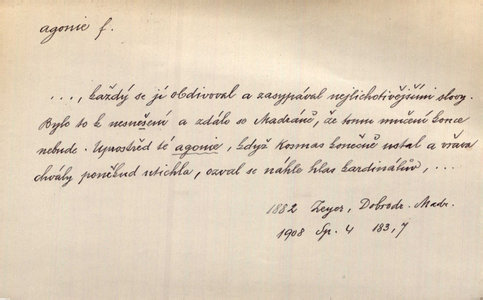 agonie f.
..., každý se jí obdivoval a zasypával nejlichotivějšími slovy.
Bylo to k nesnešení a zdálo se Madranů, že tomu mučení konce
nebude. Uprostřed té agonie, když Kosmas konečně ustal a vřava
chvály poněkud utichla, ozval se náhle hlas kardinálův, ...
1882 Zeyer, Dobrodr. Madr.
1908 Sp. 4 183,7